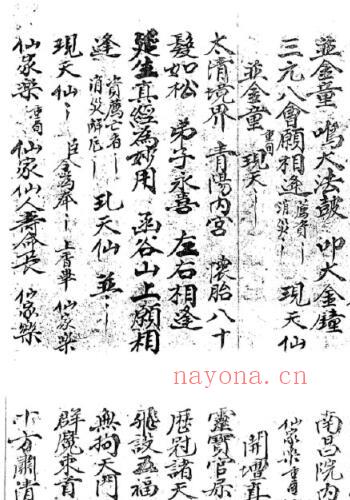 並金童 鳴大法鼓 叩大金鐘
三元八會願相逢 消災 現天仙
並金童 重句 現天
太清境界 青陽內宮 懷胎八十
髮如松 弟子永喜 左右相逢
延生真經為妙用 函谷山上願相
逢 資薦亡者 消災解厄 現天仙 並
現天仙 上香畢 仙家樂
仙家樂 重句 仙家仙人壽命長 仙家樂
nayona.cn
南昌院內
仙家樂重句
開壇真
靈寶官
歷冠諸天
飛設 福
無拘天門
群魔束首
十方肅清